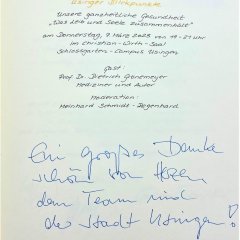 Usinger Blickpunkte
Unsere ganzheitliche Gesundheit
"Was Leib und Seele zusammenhält"
am Donnerstag, 9. März 2023 von 19-21 Uhr
im Christian-Wirth-Saal
Schlossgarten-Campus Usingen
Gast:
Prof. Dr. Dietrich Grönemeyer
Mediziner und Autor
Moderation:
Meinhard Schmidt-Degenhard
Ein großes Danke
schön von Herzen
dem Team und
der Stadt Usingen!